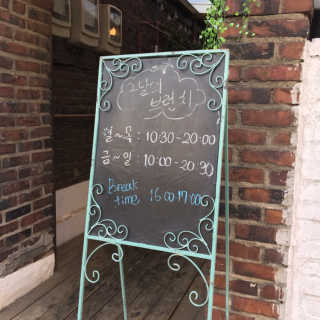 그날의
브런치
월~목 : 10:30-20:00
금~일 : 10:00-20:30
Break
time 16:00-17:00